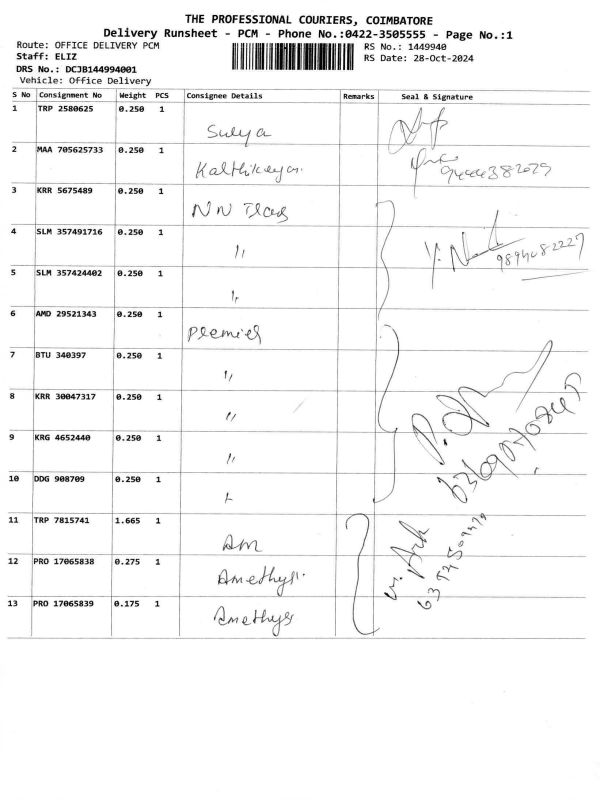 THE PROFESSIONAL COURIERS, COIMBATORE
Delivery Runsheet - PCM - Phone No.:0422-3505555 - Page No.:1
Route: OFFICE DELIVERY PCM RS No.: 1449940
Staff: ELIZ RS Date: 28-Oct-2024
DRS No.: DCJB144994001
Vehicle: Office Delivery
S No Consignment No Weight PCS Consignee Details Remarks Seal & Signature
1 TRP 2580625 0.250 1 Surya
2 MAA 705625733 0.250 1 Kalthikeyan
3 KRR 5675489 0.250 1 NN
4 SLM 357491716 0.250 1 "
5 SLM 357424402 0.250 1 "
6 AMD 29521343 0.250 1 Premier
7 BTU 340397 0.250 1 "
8 KRR 30047317 0.250 1 "
9 KRG 4652440 0.250 1 "
10 DDG 908709 0.250 1
11 TRP 7815741 1.665 1 Am
12 PRO 17065838 0.275 1 Amethys
13 PRO 17065839 0.175 1 Amethys